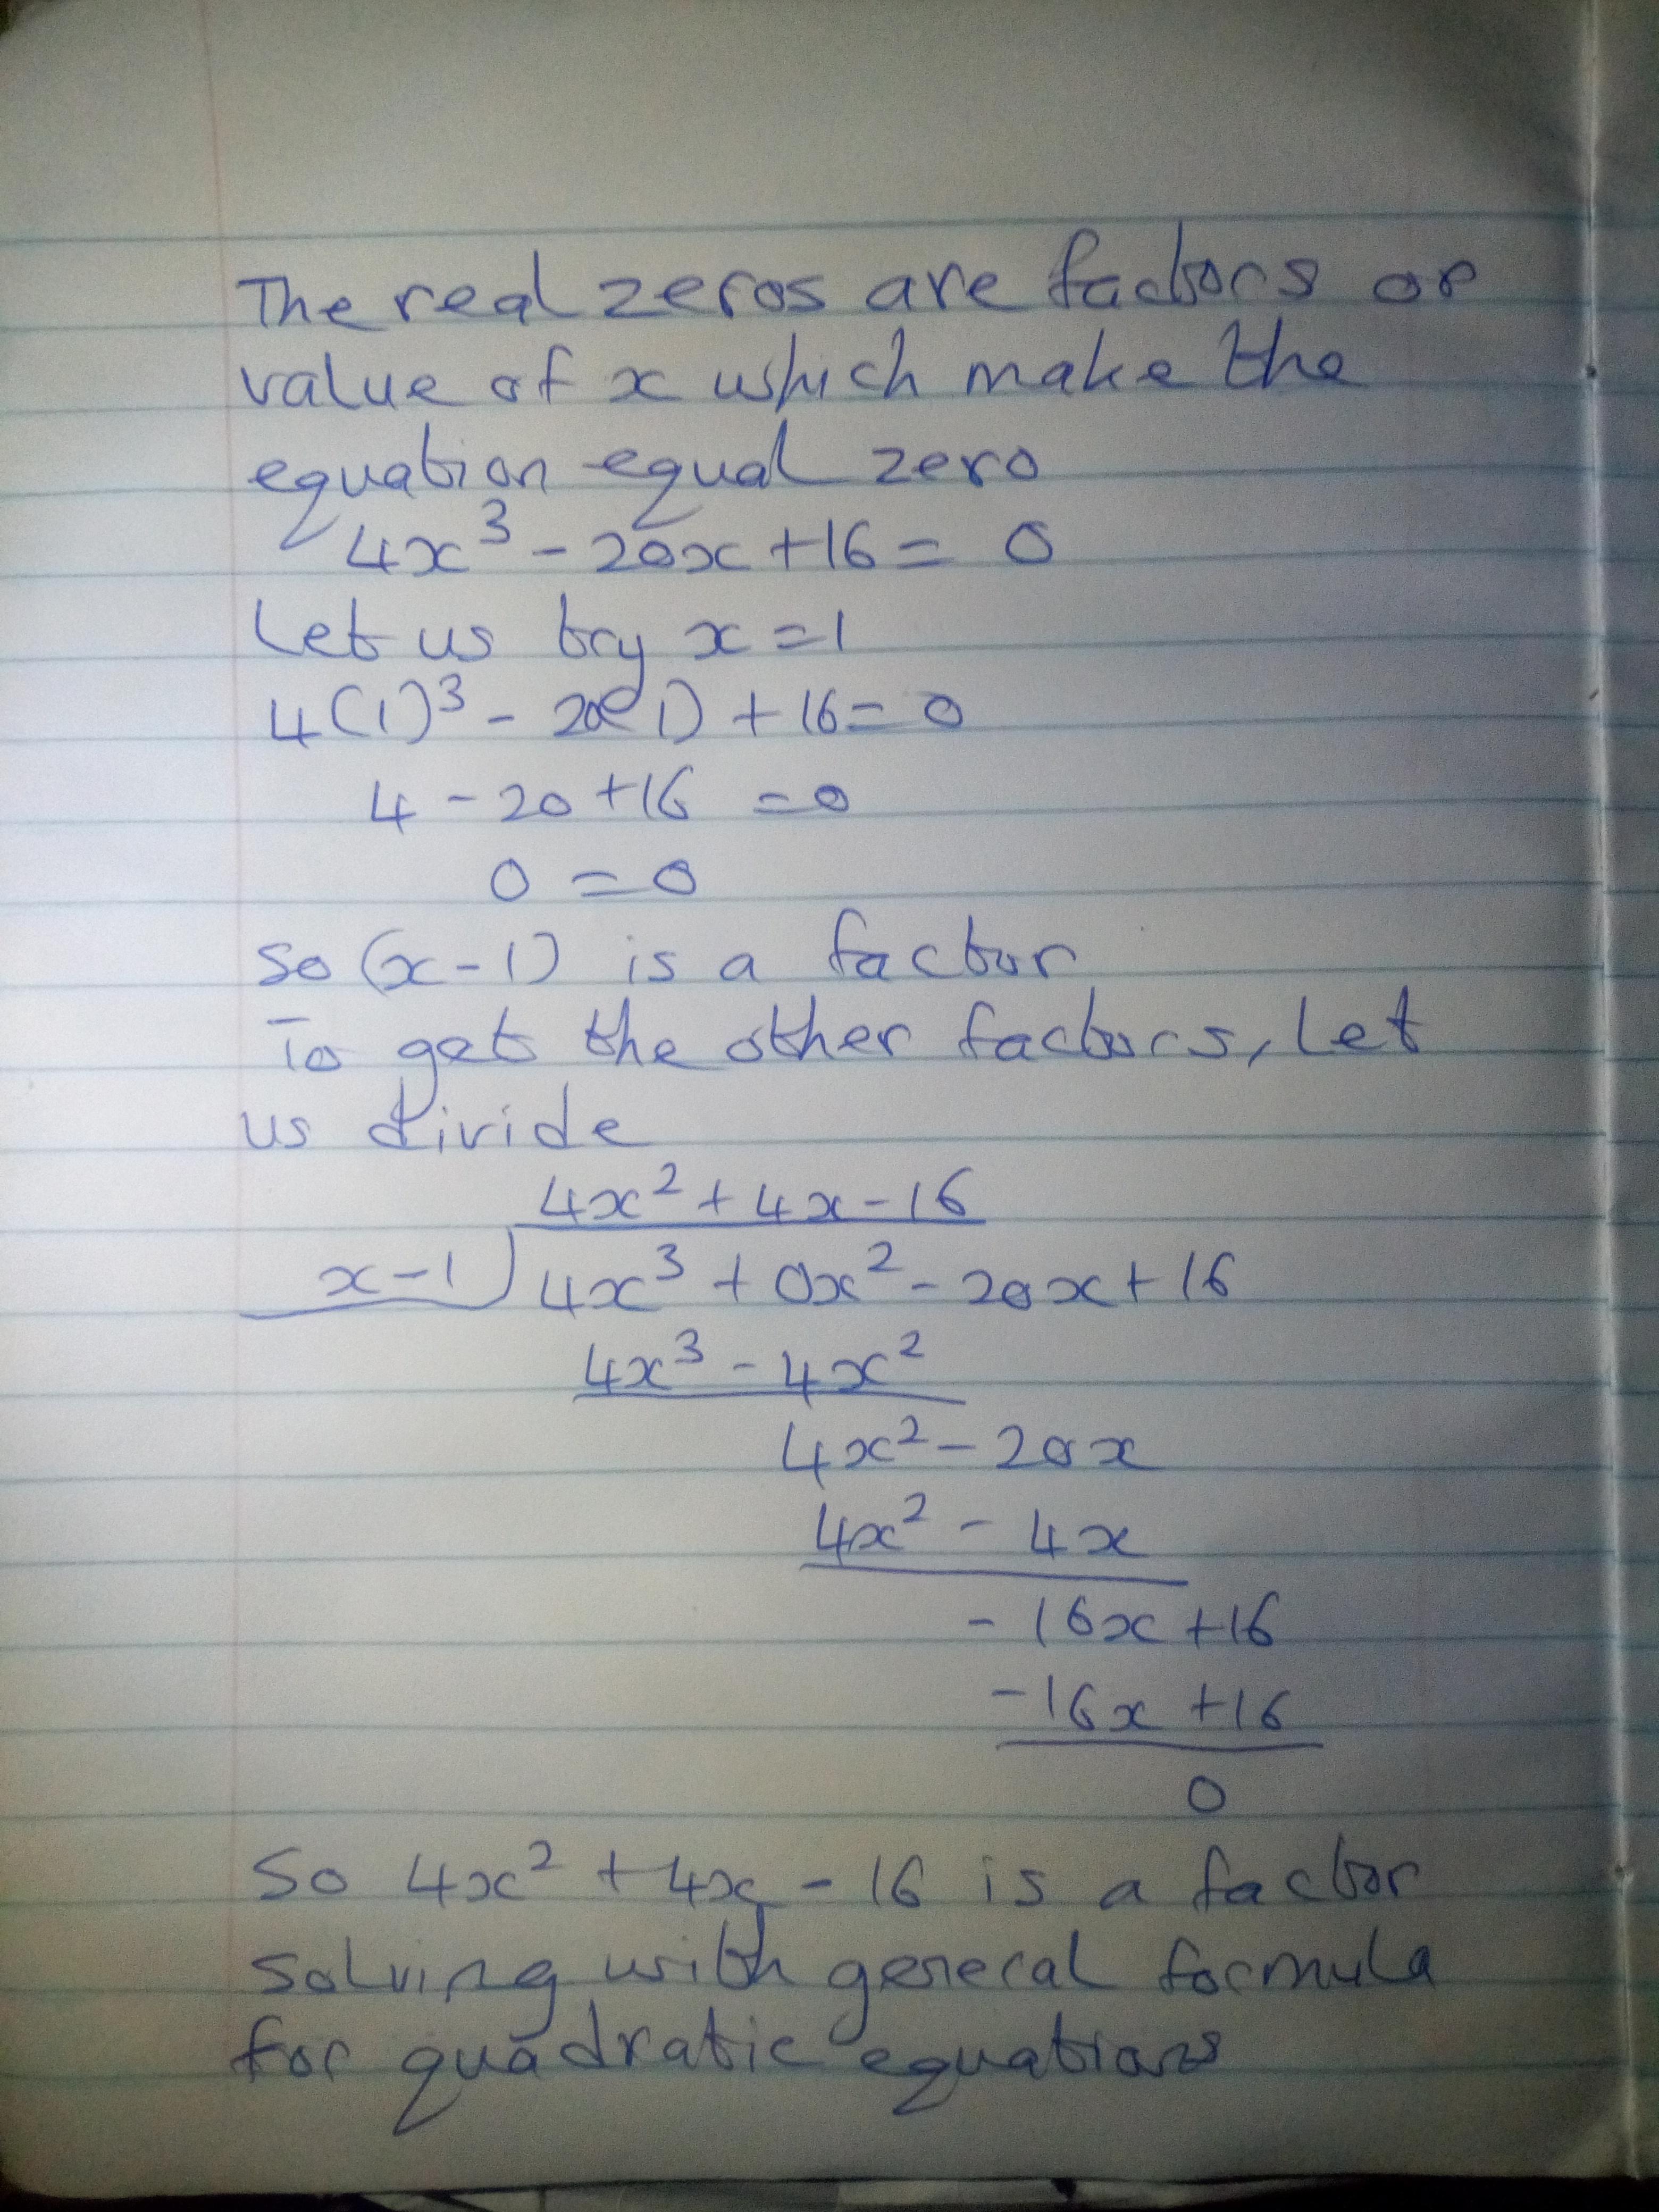 The real zeros are factors or
value of x which make the
equation equal zero
4x³ - 20x + 16 = 0
Let us try x = 1
4(1)³ - 20(1) + 16 = 0
4 - 20 + 16 = 0
0 = 0
So (x - 1) is a factor
To get the other factors, let
us divide
4x² + 4x - 16
x - 1 ) 4x³ + 0x² - 20x + 16
4x³ - 4x²
4x² - 20x
4x² - 4x
- 16x + 16
- 16x + 16
0
So 4x² + 4x - 16 is a factor
solving with general formula
for quadratic equations